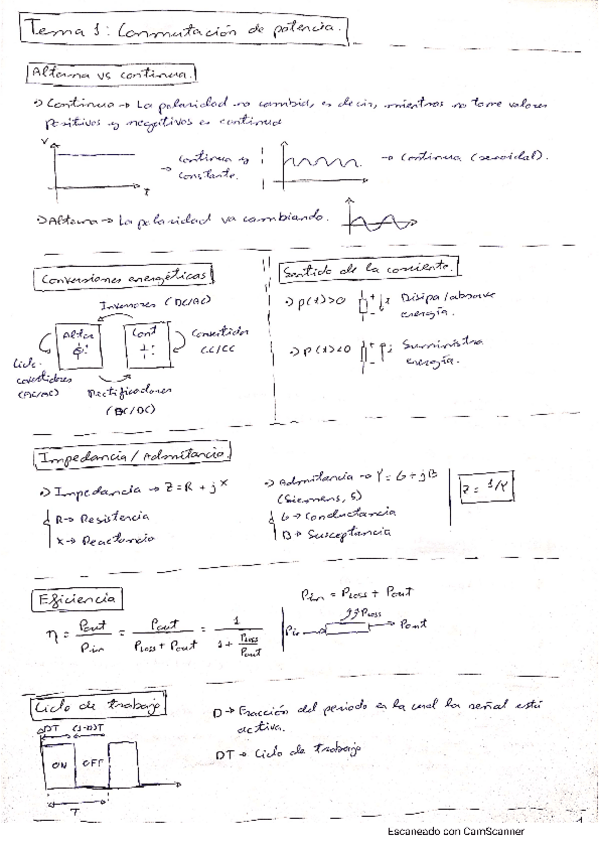 Tema 1: Conmutación de potencia.
Alterna vs continua.
Continua → La polaridad no cambia, es decir, mientras no tome valores
positivos y negativos es continua
V
T
→ continua y
constante.
→ continua (senoidal).
Alterna → La polaridad va cambiando.
Conversiones energéticas
Inversores (DC/AC)
Alter
Cont
Convertidor
CC/CC
Ciclo-
convertidores
(AC/AC)
Rectificadores
Sentido de la corriente.
p(t)>0
Disipa/absorve
energía.
p(t)<0
Suministra
energía.
Impedancia / Admitancia
Impedancia → Z = R + jX
R → Resistencia
X → Reactancia
Admitancia → Y = G + jB
(Siemens, S)
G → Conductancia
B → Susceptancia
Z = 1/Y
Eficiencia
η = Pout/Pin = Pout/(Ploss + Pout) = 1/(1 + Ploss/Pout)
Pin = Ploss + Pout
Ploss
Pin → Pout
Ciclo de trabajo
DT (1-D)T
ON OFF
T
D → Fracción del periodo en la cual la señal está
activa.
DT → Ciclo de trabajo
1
Escaneado con CamScanner